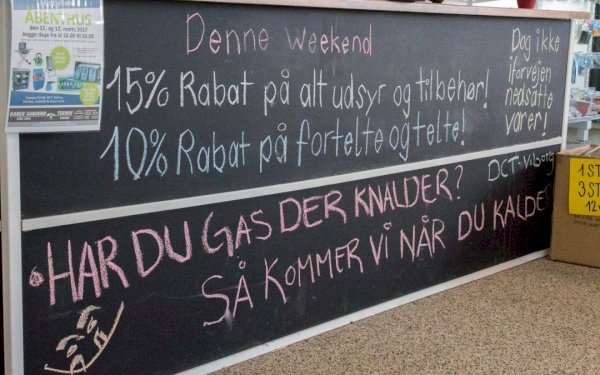 ÅBENT HUS
den 11. og 12. marts 2017
begge dage fra kl 10.00 til 16.00
DANSK CARAVAN TEKNIK
Denne weekend
15% Rabat på alt udsyr og tilbehør!
10% Rabat på fortelte og telte!
Dog ikke
iforvejen
nedsatte
varer!
DCT-Viborg
HAR DU GAS DER KNALDER?
SÅ KOMMER VI NÅR DU KALDER
1 ST
3 ST